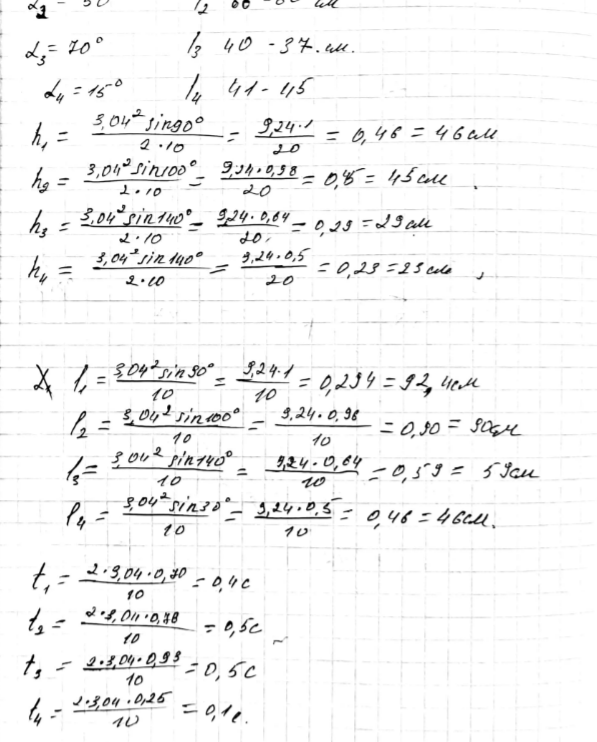 α₃ = 70° l₃ 40 - 37. см.
α₄ = 15° l₄ 41 - 45
h₁ = 3,04² sin90° / 2·10 = 9,24·1 / 20 = 0,46 = 46 см
h₂ = 3,04² sin100° / 2·10 = 9,24·0,98 / 20 = 0,45 = 45 см.
h₃ = 3,04² sin140° / 2·10 = 9,24·0,64 / 20 = 0,29 = 29 см
h₄ = 3,04² sin140° / 2·10 = 9,24·0,5 / 20 = 0,23 = 23 см,
l₁ = 3,04² sin90° / 10 = 9,24·1 / 10 = 0,294 = 92,4 см
l₂ = 3,04² sin100° / 10 = 9,24·0,98 / 10 = 0,90 = 90 см
l₃ = 3,04² sin140° / 10 = 9,24·0,64 / 10 = 0,59 = 59 см
l₄ = 3,04² sin30° / 10 = 9,24·0,5 / 10 = 0,46 = 46 см.
t₁ = 2·3,04·0,70 / 10 = 0,4 с
t₂ = 2·3,04·0,78 / 10 = 0,5 с
t₃ = 2·3,04·0,93 / 10 = 0,5 с
t₄ = 2·3,04·0,25 / 10 = 0,1 с.